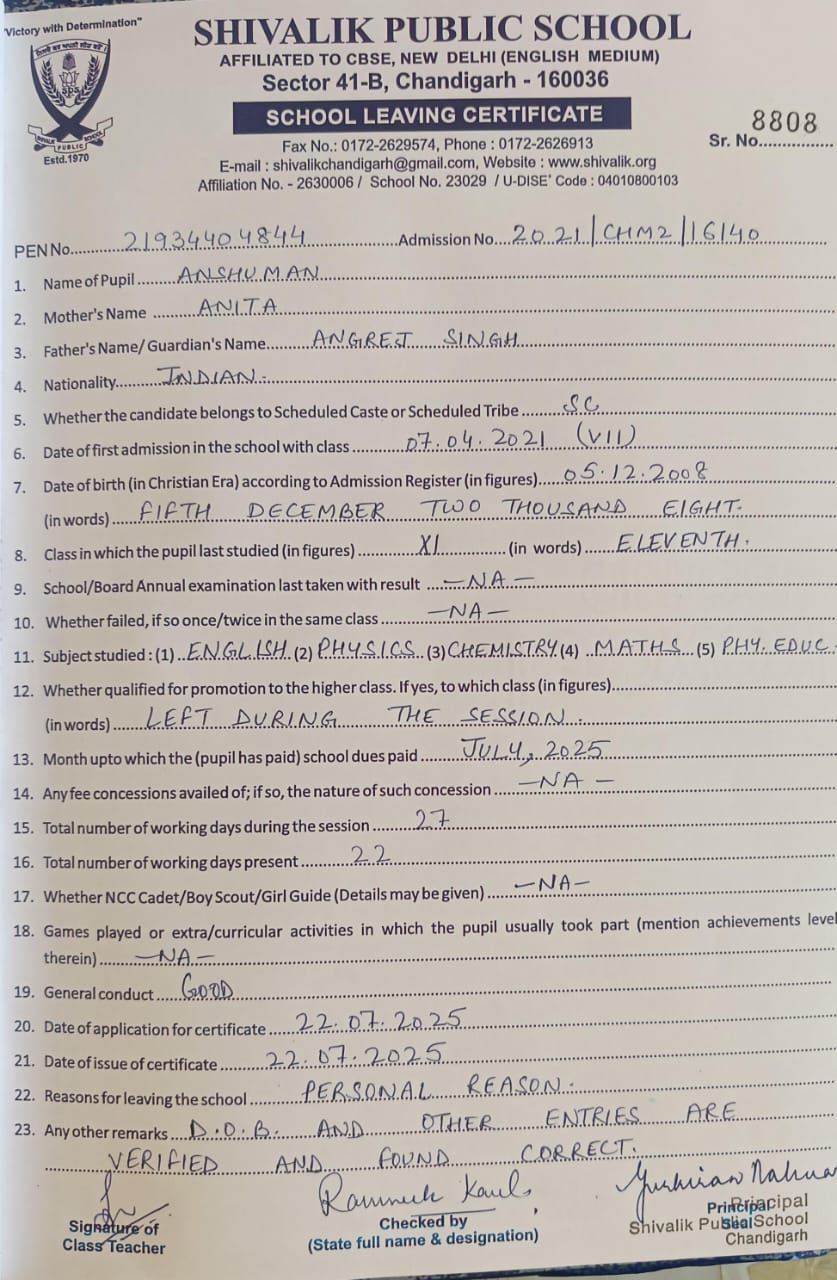 "Victory with Determination"
SHIVALIK PUBLIC SCHOOL
AFFILIATED TO CBSE, NEW DELHI (ENGLISH MEDIUM)
Sector 41-B, Chandigarh - 160036
SCHOOL LEAVING CERTIFICATE
SPS
SHIVALIK PUBLIC SCHOOL
Estd.1970
8808
Sr. No................
Fax No.: 0172-2629574, Phone : 0172-2626913
E-mail : shivalikchandigarh@gmail.com, Website : www.shivalik.org
Affiliation No. - 2630006 / School No. 23029 / U-DISE' Code : 04010800103
PEN No. 21934404844 Admission No. 2021/CHM2/16140
1. Name of Pupil ANSHUMAN
2. Mother's Name ANITA
3. Father's Name/ Guardian's Name ANGREJ SINGH
4. Nationality INDIAN.
5. Whether the candidate belongs to Scheduled Caste or Scheduled Tribe SC
6. Date of first admission in the school with class 07.04.2021 (VII)
7. Date of birth (in Christian Era) according to Admission Register (in figures) 05.12.2008
(in words) FIFTH DECEMBER TWO THOUSAND EIGHT.
8. Class in which the pupil last studied (in figures) XI (in words) ELEVENTH.
9. School/Board Annual examination last taken with result —NA—
10. Whether failed, if so once/twice in the same class —NA—
11. Subject studied : (1) ENGLISH (2) PHYSICS (3) CHEMISTRY (4) MATHS (5) PHY. EDUC.
12. Whether qualified for promotion to the higher class. If yes, to which class (in figures)
(in words) LEFT DURING THE SESSION.
13. Month upto which the (pupil has paid) school dues paid JULY, 2025
14. Any fee concessions availed of; if so, the nature of such concession —NA—
15. Total number of working days during the session 27
16. Total number of working days present 22
17. Whether NCC Cadet/Boy Scout/Girl Guide (Details may be given) —NA—
18. Games played or extra/curricular activities in which the pupil usually took part (mention achievements level
therein) —NA—
19. General conduct GOOD
20. Date of application for certificate 22.07.2025
21. Date of issue of certificate 22.07.2025
22. Reasons for leaving the school PERSONAL REASON.
23. Any other remarks D.O.B. AND OTHER ENTRIES ARE
VERIFIED AND FOUND CORRECT.
Signature of
Class Teacher
Checked by
(State full name & designation)
Principal
Seal
Principal
Shivalik Public School
Chandigarh